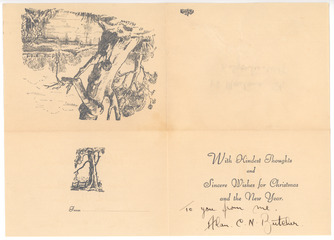 From
With Kindest Thoughts
and
Sincere Wishes for Christmas
and the New Year.
To you from me.
Alan C. N. Butcher